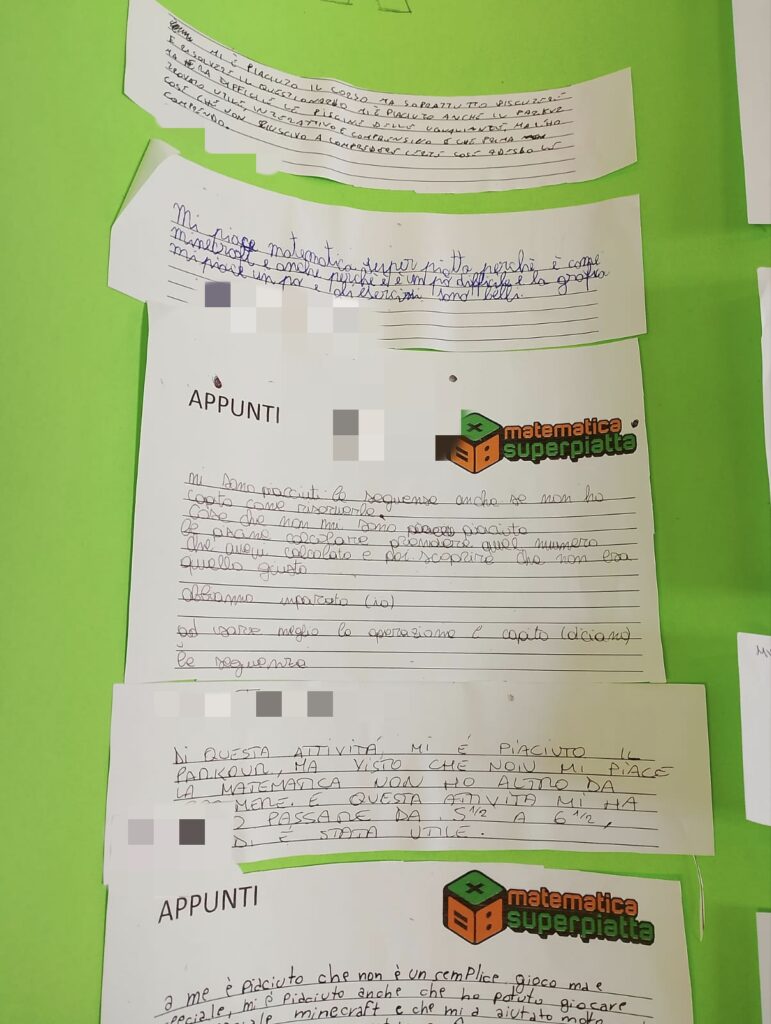 MI È PIACIUTO IL CORSO MA SOPRATTUTTO DISCUTERE
E RISOLVERE IL QUESTIONARIO MI È PIACIUTO ANCHE IL PARKUR
MA ERA DIFFICILE LE PISCINE DELLE MA L'HO
TROVATO UTILE, INTERATTIVO E COMPRENSIVO E CHE PRIMA
COSE CHE NON RIUSCIVO A COMPRENDERE CERTE COSE ADESSO LE
COMPRENDO.
Mi piace matematica super piatta perchè è come
minecraft e anche perchè è un pò difficile e la grafica
mi piace un pò e gli esercizi sono belli.
APPUNTI
matematica
superpiatta
mi sono piaciuti le seguense anche se non ho
capito come risolverle.
Cose che non mi sono piaciute
le piscine calcolare prendere quel numero
che avevi calcolato e poi scoprire che non era
quello giusto
abbiamo imparato (io)
ad usare meglio le operazione e capito (diciamo)
le seguenze
DI QUESTA ATTIVITÁ, MI É PIACIUTO IL
PARKOUR, MA VISTO CHE NON MI PIACE
LA MATEMATICA NON HO ALTRO DA
MERE. E QUESTA ATTIVITÀ MI HA
PASSARE DA 5 1/2 A 6 1/2,
DI É STATA UTILE.
APPUNTI
matematica
superpiatta
a me è piaciuto che non è un semplice gioco ma è
speciale, mi è piaciuto anche che ho potuto giocare
minecraft e che mi a aiutato molto